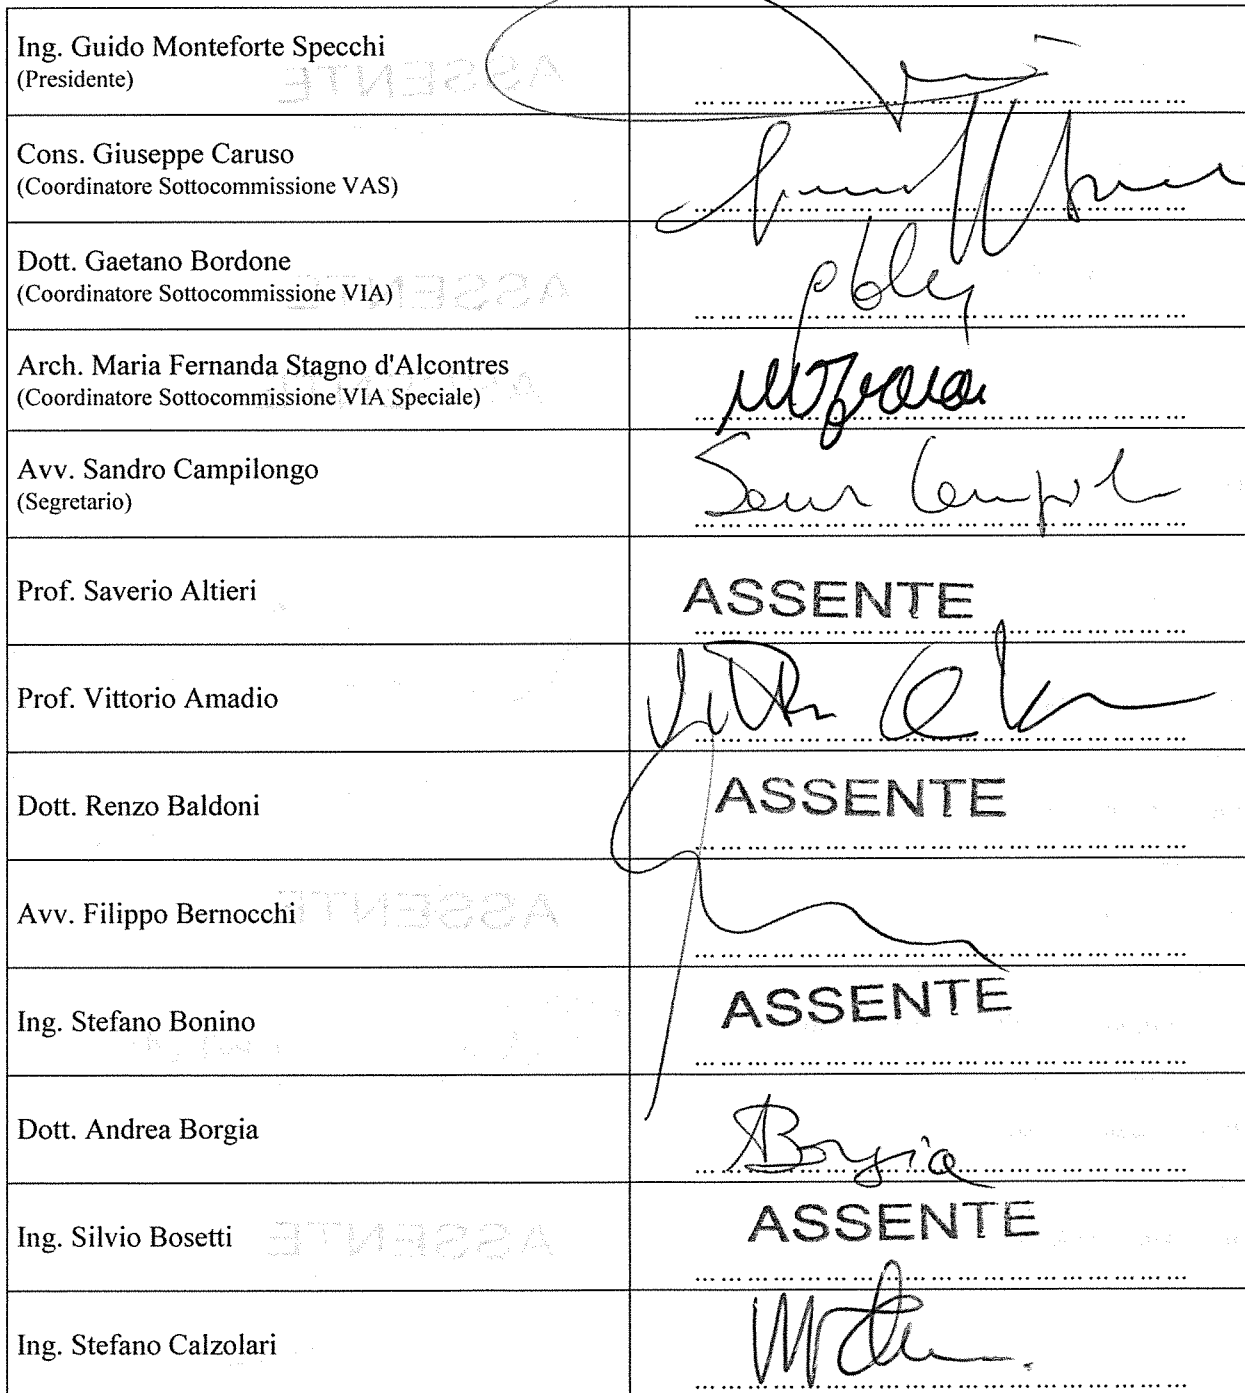 Ing. Guido Monteforte Specchi
(Presidente)
Cons. Giuseppe Caruso
(Coordinatore Sottocommissione VAS)
Dott. Gaetano Bordone
(Coordinatore Sottocommissione VIA)
Arch. Maria Fernanda Stagno d'Alcontres
(Coordinatore Sottocommissione VIA Speciale)
Avv. Sandro Campilongo
(Segretario)
Prof. Saverio Altieri
ASSENTE
Prof. Vittorio Amadio
Dott. Renzo Baldoni
ASSENTE
Avv. Filippo Bernocchi
Ing. Stefano Bonino
ASSENTE
Dott. Andrea Borgia
Borgia
Ing. Silvio Bosetti
ASSENTE
Ing. Stefano Calzolari